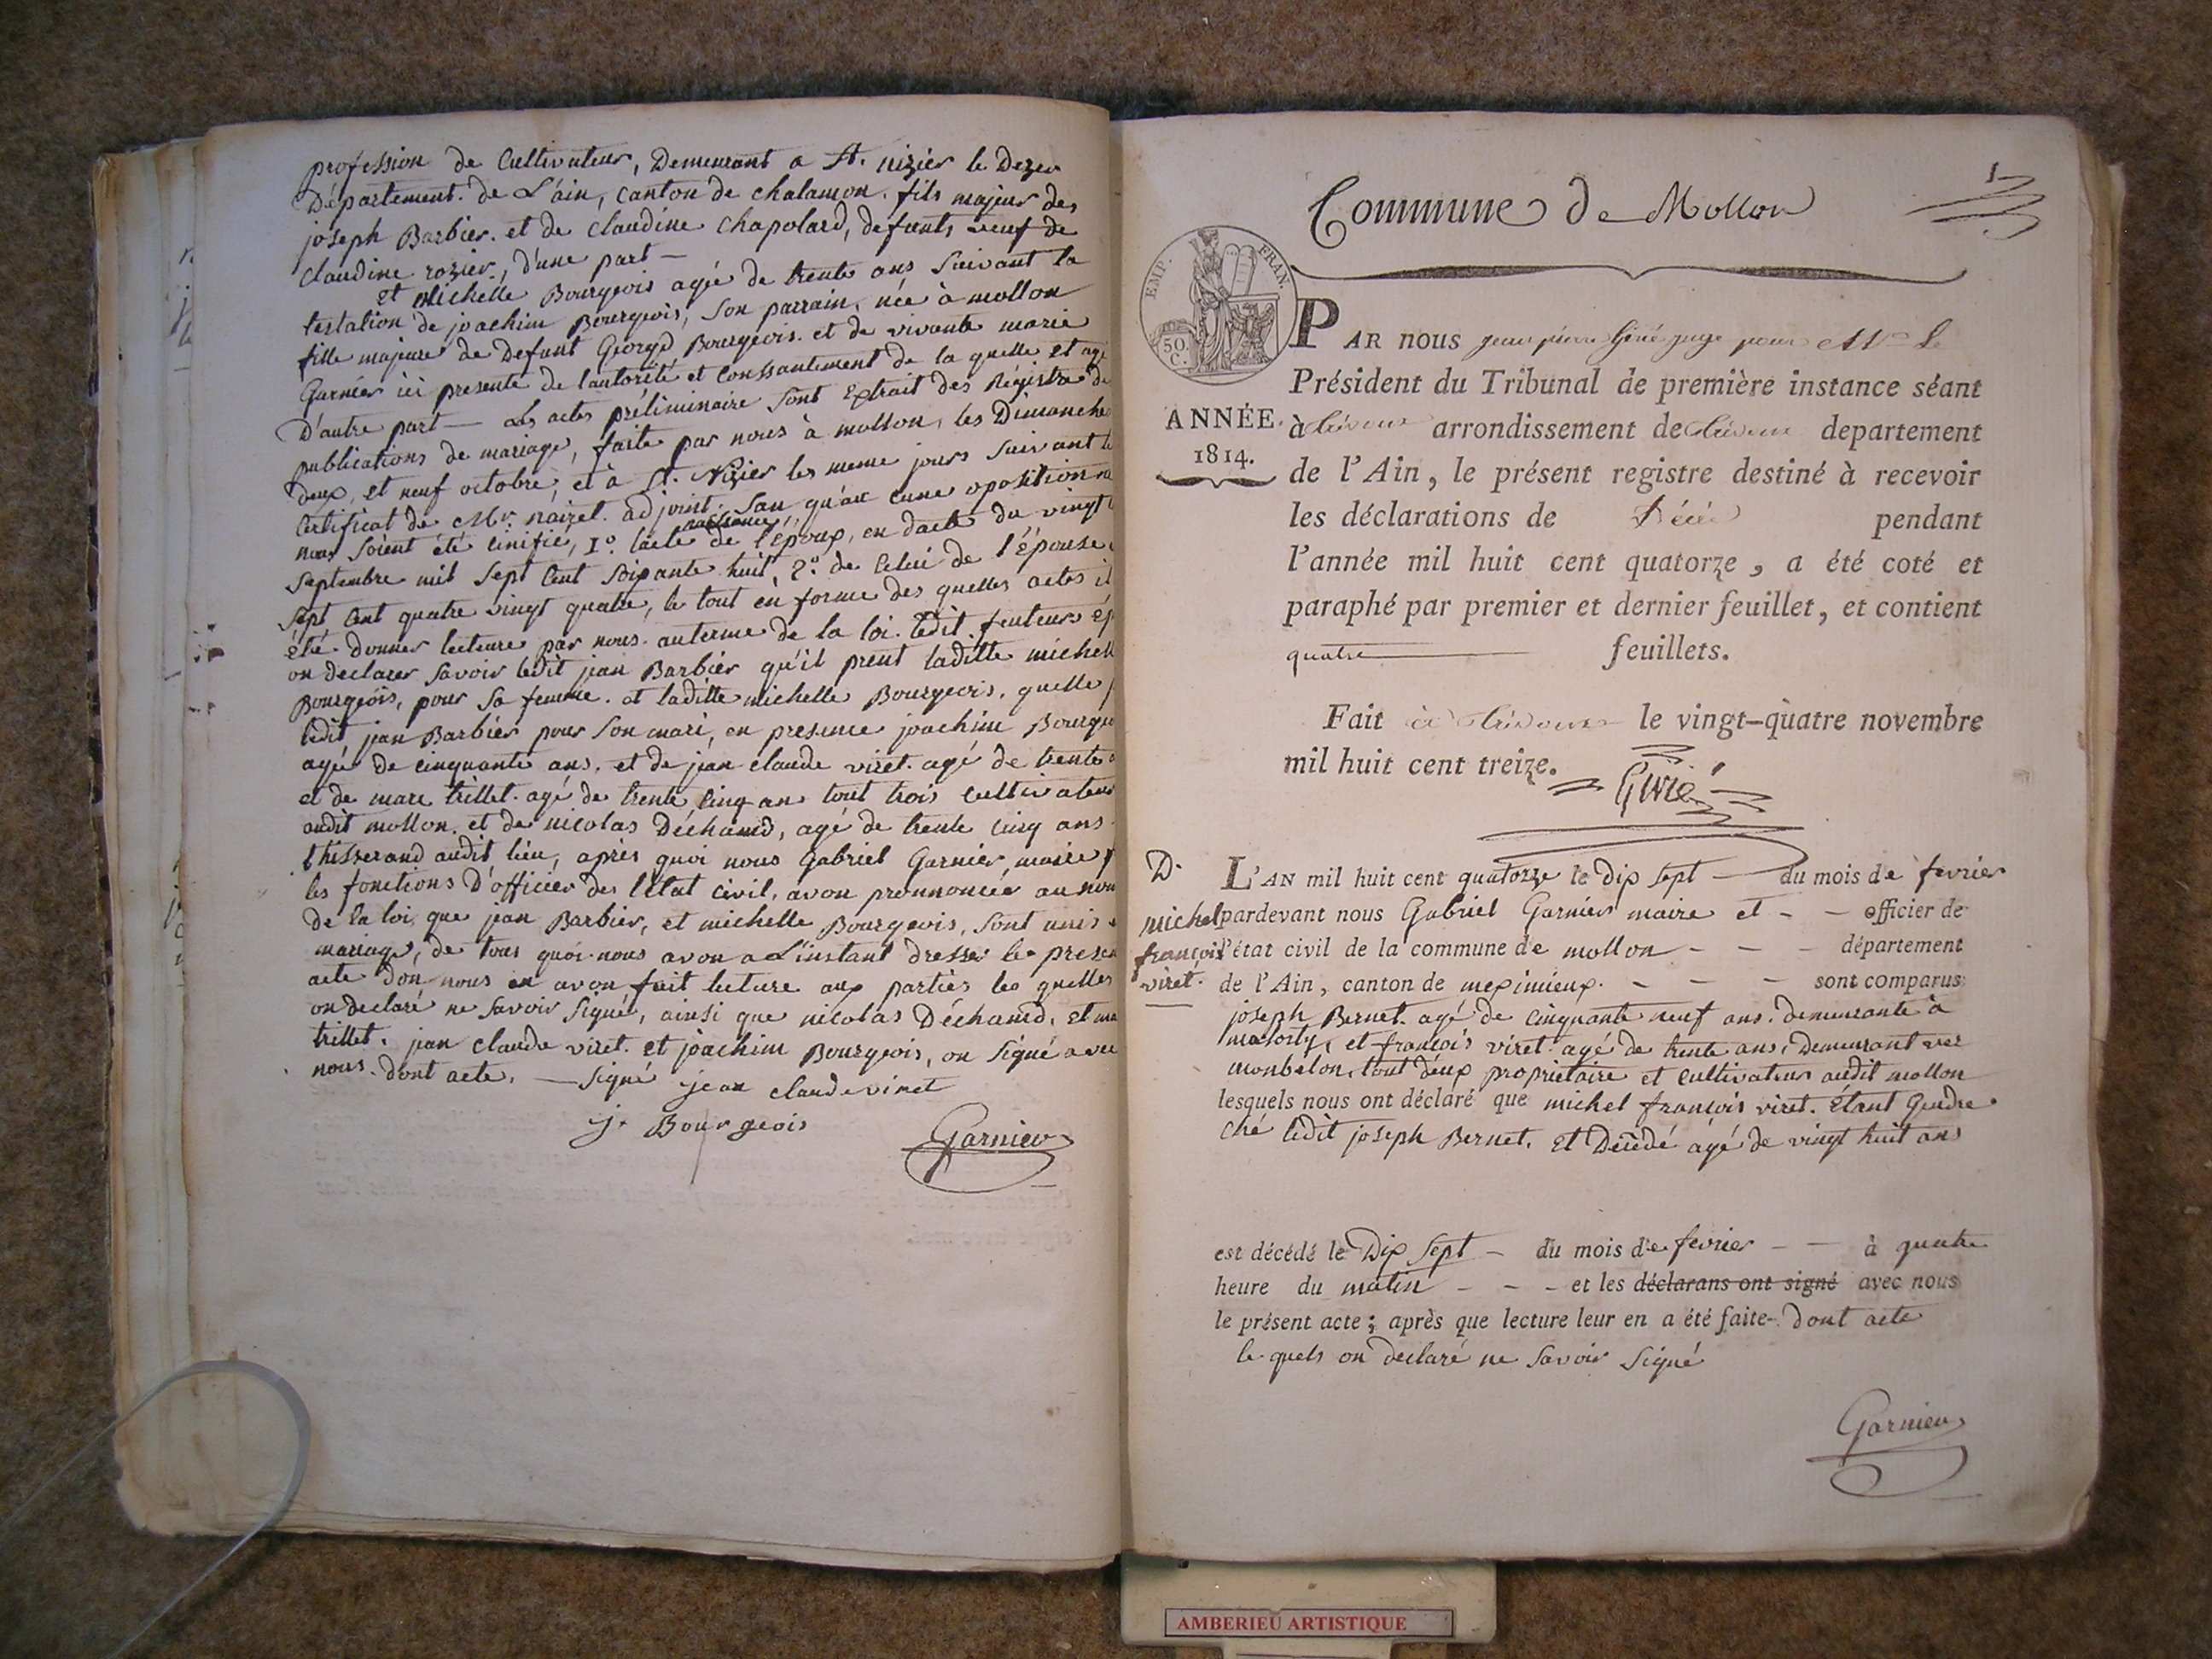 profession de Cultivateur, Demeurant a St. nizier le Dezer
Département. de L'ain, canton de chalamon. fils majeur des
joseph Barbier. et de claudine Chapolard, defunts veuf de
Claudine rozier, d'une part —
et Michelle Bourgeois agée de trente ans Suivant la
testation de joachim Bourgeois, Son parrain, née à mollon
fille majeure de Defunt George Bourgeois. et de vivante marie
Garnier ici presente de l'autorité et Conssantement de la quelle et
D'autre part — Les actes préliminaire Sont Extrait des Régistre de
publications de mariage, faite par nous à mollon, les Dimanche
deux, et neuf octobre, et à St. Nizier les meme jours Suivant le
Certificat de Mr. nairet. adjoint. San qu'au cune oposition
nous Soient été sinifié, 1º. l'acte de naissance de l'époux, en date du vingt
Septembre mil Sept Cent Soixante huit, 2º. de Celui de l'Épouse
Sept Cent quatre vingt quatre, le tout en forme des quelles actes il
été donner lecteure par nous. au terme de la loi. Ledit feuteurs
on declarer Savoir ledit jean Barbier qu'il prent laditte
Bourgeois, pour Sa femme. et laditte michelle Bourgeois, quelle
ledit jean Barbier pour Son mari, en presence joachim
agée de cinquante ans. et de jean claude viret. agé de trente
et de marc trillet. agé de trente Cinq ans tout trois Cultivateur
audit mollon. et de nicolas Déchamd, agé de trente cinq ans
thisserand audit lieu, après quoi nous Gabriel Garnier, maire
les fonctions D'officier des l'état Civil, avon prononcée au nom
de la loi, que jean Barbier, et michelle Bourgeois, Sont unis
mariage, de tous quoi nous avon a L'instant dresser le
acte don nous en avon fait lecture aux parties les quelles
on declaré ne Savoir Signé, ainsi que nicolas Déchamd, et
trillet. jean claude viret. et joachim Bourgeois, on Signé avec
nous. dont acte. — Signé jean claude viret
j. Bourgeois
Garnier
Commune de Mollon
1
EMP. FRAN.
50.
C.
PAR nous jean pierre Giriè juge pour Mr Le
Président du Tribunal de première instance séant
ANNÉE
1814.
à trévoux arrondissement de trévoux departement
de l'Ain, le présent registre destiné à recevoir
les déclarations de Décès pendant
l'année mil huit cent quatorze, a été coté et
paraphé par premier et dernier feuillet, et contient
quatre feuillets.
Fait à trévoux le vingt-quatre novembre
mil huit cent treize.
Girié
D.
michel
françois
viret.
L'AN mil huit cent quatorze le Dix Sept — du mois de fevrier
pardevant nous Gabriel Garnier maire et - - officier de
l'état civil de la commune de mollon - - - département
de l'Ain, canton de meximieux. - - - sont comparus
joseph Bernet. agé de Cinquante neuf ans. demeurante à
et françois viret. agé de trente ans, Demeurant
tout deux proprietaire et Cultivateur audit mollon
lesquels nous ont déclaré que michel françois viret. Étant Gendre
ché ledit joseph Bernet. et Decédé agé de vingt huit ans
est décédé le Dix Sept - du mois de fevrier - - à quatre
heure du matin - - - et les déclarans ont signé avec nous
le présent acte; après que lecture leur en a été faite. Dont acte
le quels on declaré ne Savoir Signé
Garnier
AMBERIEU ARTISTIQUE